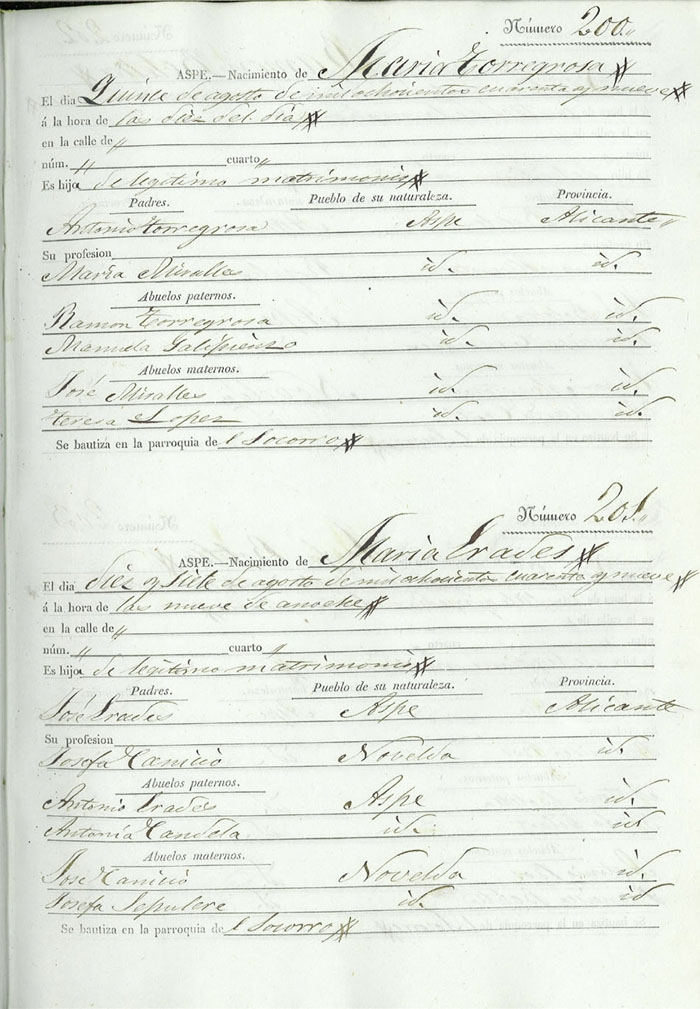 Número 200
ASPE.—Nacimiento de Maria Torregrosa
El dia Quince de agosto de mil ochocientos cuarenta y nueve
á la hora de las diez del dia
en la calle de "
núm. " cuarto "
Es hija de legitimo matrimonio
Padres. Pueblo de su naturaleza. Provincia.
Antonio Torregrosa Aspe Alicante
Su profesion
Maria Miralles id. id.
Abuelos paternos.
Ramon Torregrosa id. id.
Manuela Galipienso id. id.
Abuelos maternos.
José Miralles id. id.
Teresa Lopez id. id.
Se bautiza en la parroquia del Socorro
Número 201
ASPE.—Nacimiento de Maria Erades
El dia diez y siete de agosto de mil ochocientos cuarenta y nueve
á la hora de las nueve de anoche
en la calle de "
núm. " cuarto "
Es hija de legitimo matrimonio
Padres. Pueblo de su naturaleza. Provincia.
José Erades Aspe Alicante
Su profesion
Josefa Canicio Novelda id.
Abuelos paternos.
Antonio Erades Aspe id.
Antonia Candela id. id
Abuelos maternos.
José Canicio Novelda id.
Josefa Sepulcre id. id
Se bautiza en la parroquia del Socorro